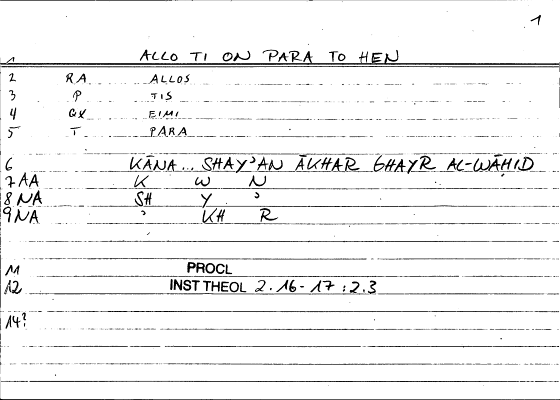 1
1 ALLO TI ON PARA TO HEN
2 RA ALLOS
3 P TIS
4 GX EIMI
5 T PARA
6 KĀNA... SHAY'AN ĀKHAR GHAYR AL-WĀḤID
7 AA K W N
8 NA SH Y '
9 NA ' KH R
11 PROCL
12 INST THEOL 2.16-17 : 2.3
14?